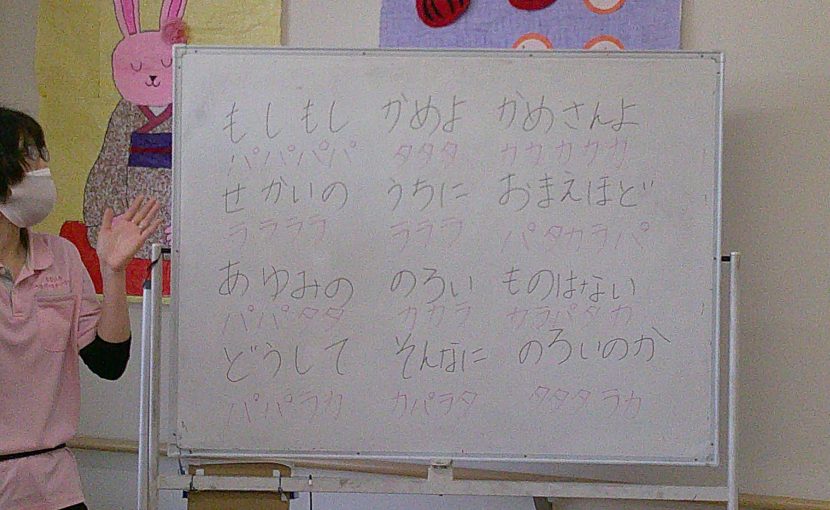 もしもし かめよ かめさんよ
パパパパ タタタ カカカカカ
せかいの うちに おまえほど
ララララ ラララ パタカラパ
あゆみの のろい ものはない
パパタタ カカラ カラパタカ
どうして そんなに のろいのか
パパラカ カパラタ タタタラカ